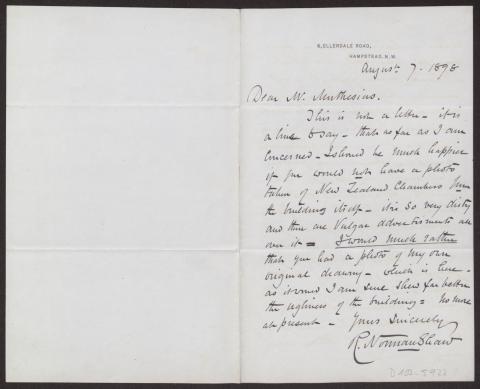 6, ELLERDALE ROAD,
HAMPSTEAD. N.W.
August 7. 1898
Dear Mr. Muthesius.
This is not a letter - it is
a line to say - that as far as I am
concerned - I should be much happier
if you would not have a photo
taken of New Zealand Chambers from
the building itself - it is so very dirty
and there are vulgar advertisments all
over it = I would much rather
that you had a photo of my own
original drawing - which is here -
as it would I am sure shew far better
the ugliness of the building = No more
at present - Yours Sincerely
R. Norman Shaw
D 102-5922